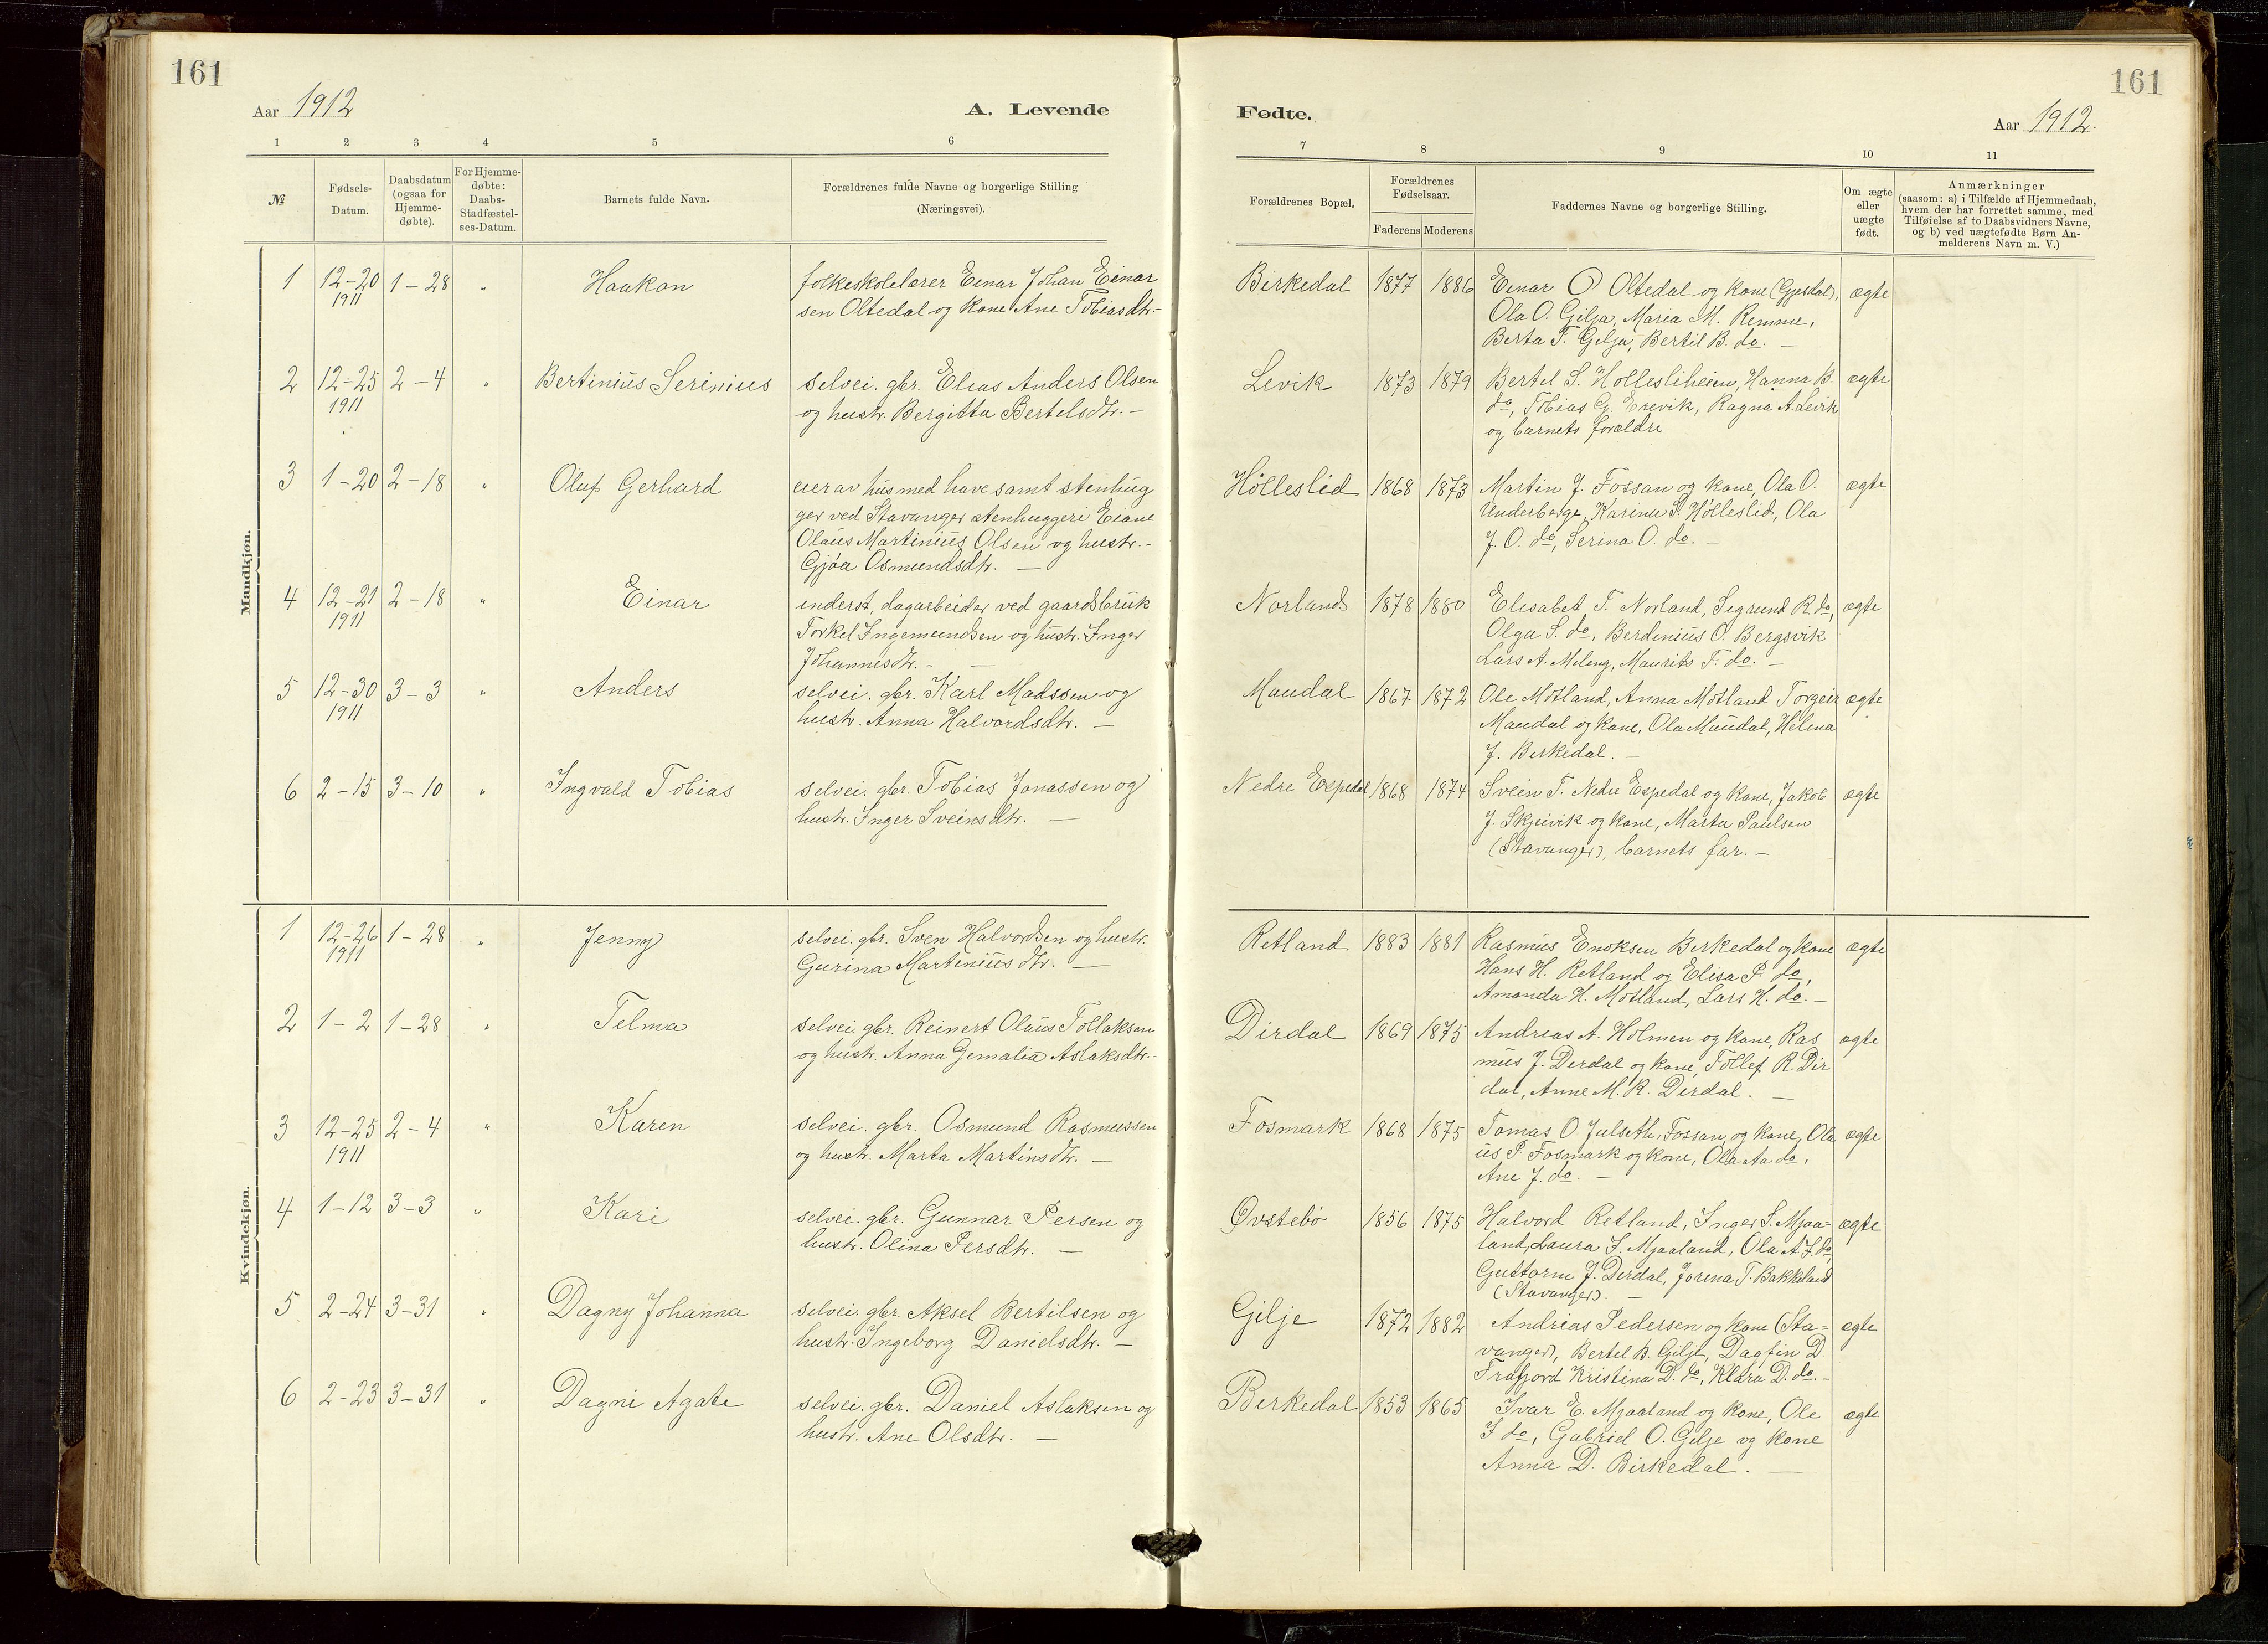 161
161
Aar 1912
A. Levende
Fødte.
Aar 1912.
1 2 3 4 5 6
7 8 9 10 11
№
Fødsels-
Datum.
Daabsdatum
(ogsaa for
Hjemme-
døbte).
For Hjemme-
døbte:
Daabs-
Stadfæstel-
ses-Datum.
Barnets fulde Navn.
Forældrenes fulde Navne og borgerlige Stilling
(Næringsvei).
Forældrenes Bopæl.
Forældrenes
Fødselsaar.
Faderens Moderens
Faddernes Navne og borgerlige Stilling.
Om ægte
eller
uægte
født.
Anmærkninger
(saasom: a) i Tilfælde af Hjemmedaab,
hvem der har forrettet samme, med
Tilføielse af to Daabsvidners Navne,
og b) ved uægtefødte Børn An-
melderens Navn m. V.)
Mandkjøn.
1 12-20 1911 1-28 " Haakon
folkeskolelærer Einar Johan Einar
sen Oltedal og kone Ane Tobiasdtr. -
Birkedal 1877 1886
Einar O Oltedal og kone (Gjesdal),
Ola O. Gilja, Maria M. Remme,
Berta T. Gilja, Bertil B. do. -
ægte
2 12-25 1911 2-4 " Bertinius Serinius
selvei. gbr. Elias Anders Olsen
og hustr. Bergitta Bertelsdtr. -
Levik 1873 1879
Bertel S. Hollesliheien, Hanna B.
do, Tobias G. Erevik, Ragna A. Levik
og barnets forældre
ægte
3 1-20 2-18 " Oluf Gerhard
eier av hus med have samt stenhug
ger ved Stavanger stenhuggeri Eiane
Olaus Martinius Olsen og hustr. -
Gjøa Osmundsdtr. -
Hölleslid 1868 1873
Martin J. Fossan og kone, Ola O.
Underberge, Karina P. Hölleslid, Ola
J. O. do, Serina O. do. -
ægte
4 12-21 1911 2-18 " Einar
inderst, dagarbeider ved gaardsbruk
Torkel Ingemundsen og hustr. Inger
Johannesdtr. -
Norland 1878 1880
Elisabet T. Norland, Segrund R. do,
Olga S. do, Berdinius O. Bergsvik
Lars A. Meleng, Maurits T. do. -
ægte
5 12-30 1911 3-3 " Anders
selvei. gbr. Karl Madssen og
hustr. Anna Halvordsdtr. -
Maudal 1867 1872
Ole Motland, Anna Motland Torgeir
Maudal og kone, Ola Maudal, Helena
J. Birkedal. -
ægte
6 2-15 3-10 " Ingvald Tobias
selvei. gbr. Tobias Jonassen og
hustr. Inger Sveinsdtr. -
Nedre Espedal 1868 1874
Svein T. Nedre Espedal og kone, Jakob
J. Skjeivik og kone, Marta Paulsen
(Stavanger), barnets far. -
ægte
Kvindekjøn.
1 12-26 1911 1-28 " Jenny
selvei. gbr. Sven Halvordsen og hustr.
Gurina Martiniusdtr. -
Retland 1883 1881
Rasmus Enoksen Birkedal og kone
Hans H. Retland og Elisa P. do,
Amanda H. Motland, Lars H. do. -
ægte
2 1-2 1-28 " Telma
selvei. gbr. Reinert Olaus Tollaksen
og hustr. Anna Jemalia Aslaksdtr. -
Dirdal 1869 1875
Andreas A. Holmen og kone, Ras
mus J. Dirdal og kone, Tollef R. Dir
dal, Anne M. R. Dirdal. -
ægte
3 12-25 1911 2-4 " Karen
selvei. gbr. Osmund Rasmussen
og hustr. Marta Martinsdtr. -
Fosmark 1868 1875
Tomas O Julseth, Fossan og kone, Ola
us P. Fosmark og kone, Ola Aa do,
Ane J. do. -
ægte
4 1-12 3-3 " Kari
selvei. gbr. Gunnar Persen og
hustr. Olina Persdtr. -
Øvstebö 1856 1875
Halvord Retland, Inger S. Mjaa-
land, Laura I. Mjaaland, Ola A. I. do,
Guttorm J. Dirdal, Jorena T. Bakkeland
(Stavanger). -
ægte
5 2-24 3-31 " Dagny Johanna
selvei. gbr. Aksel Bertilsen og
hustr. Ingeborg Danielsdtr. -
Gilje 1872 1882
Andreas Pedersen og kone (Sta-
vanger), Bertel B. Gilje, Dagfin D.
Frafjord Kristina D. do, Klara D. do. -
ægte
6 2-23 3-31 " Dagni Agate
selvei. gbr. Daniel Aslaksen og
hustr. Ane Olsdtr. -
Birkedal 1853 1865
Ivar E. Mjaaland og kone, Ole
I do, Gabriel O. Gilje og kone
Anna D. Birkedal. -
ægte